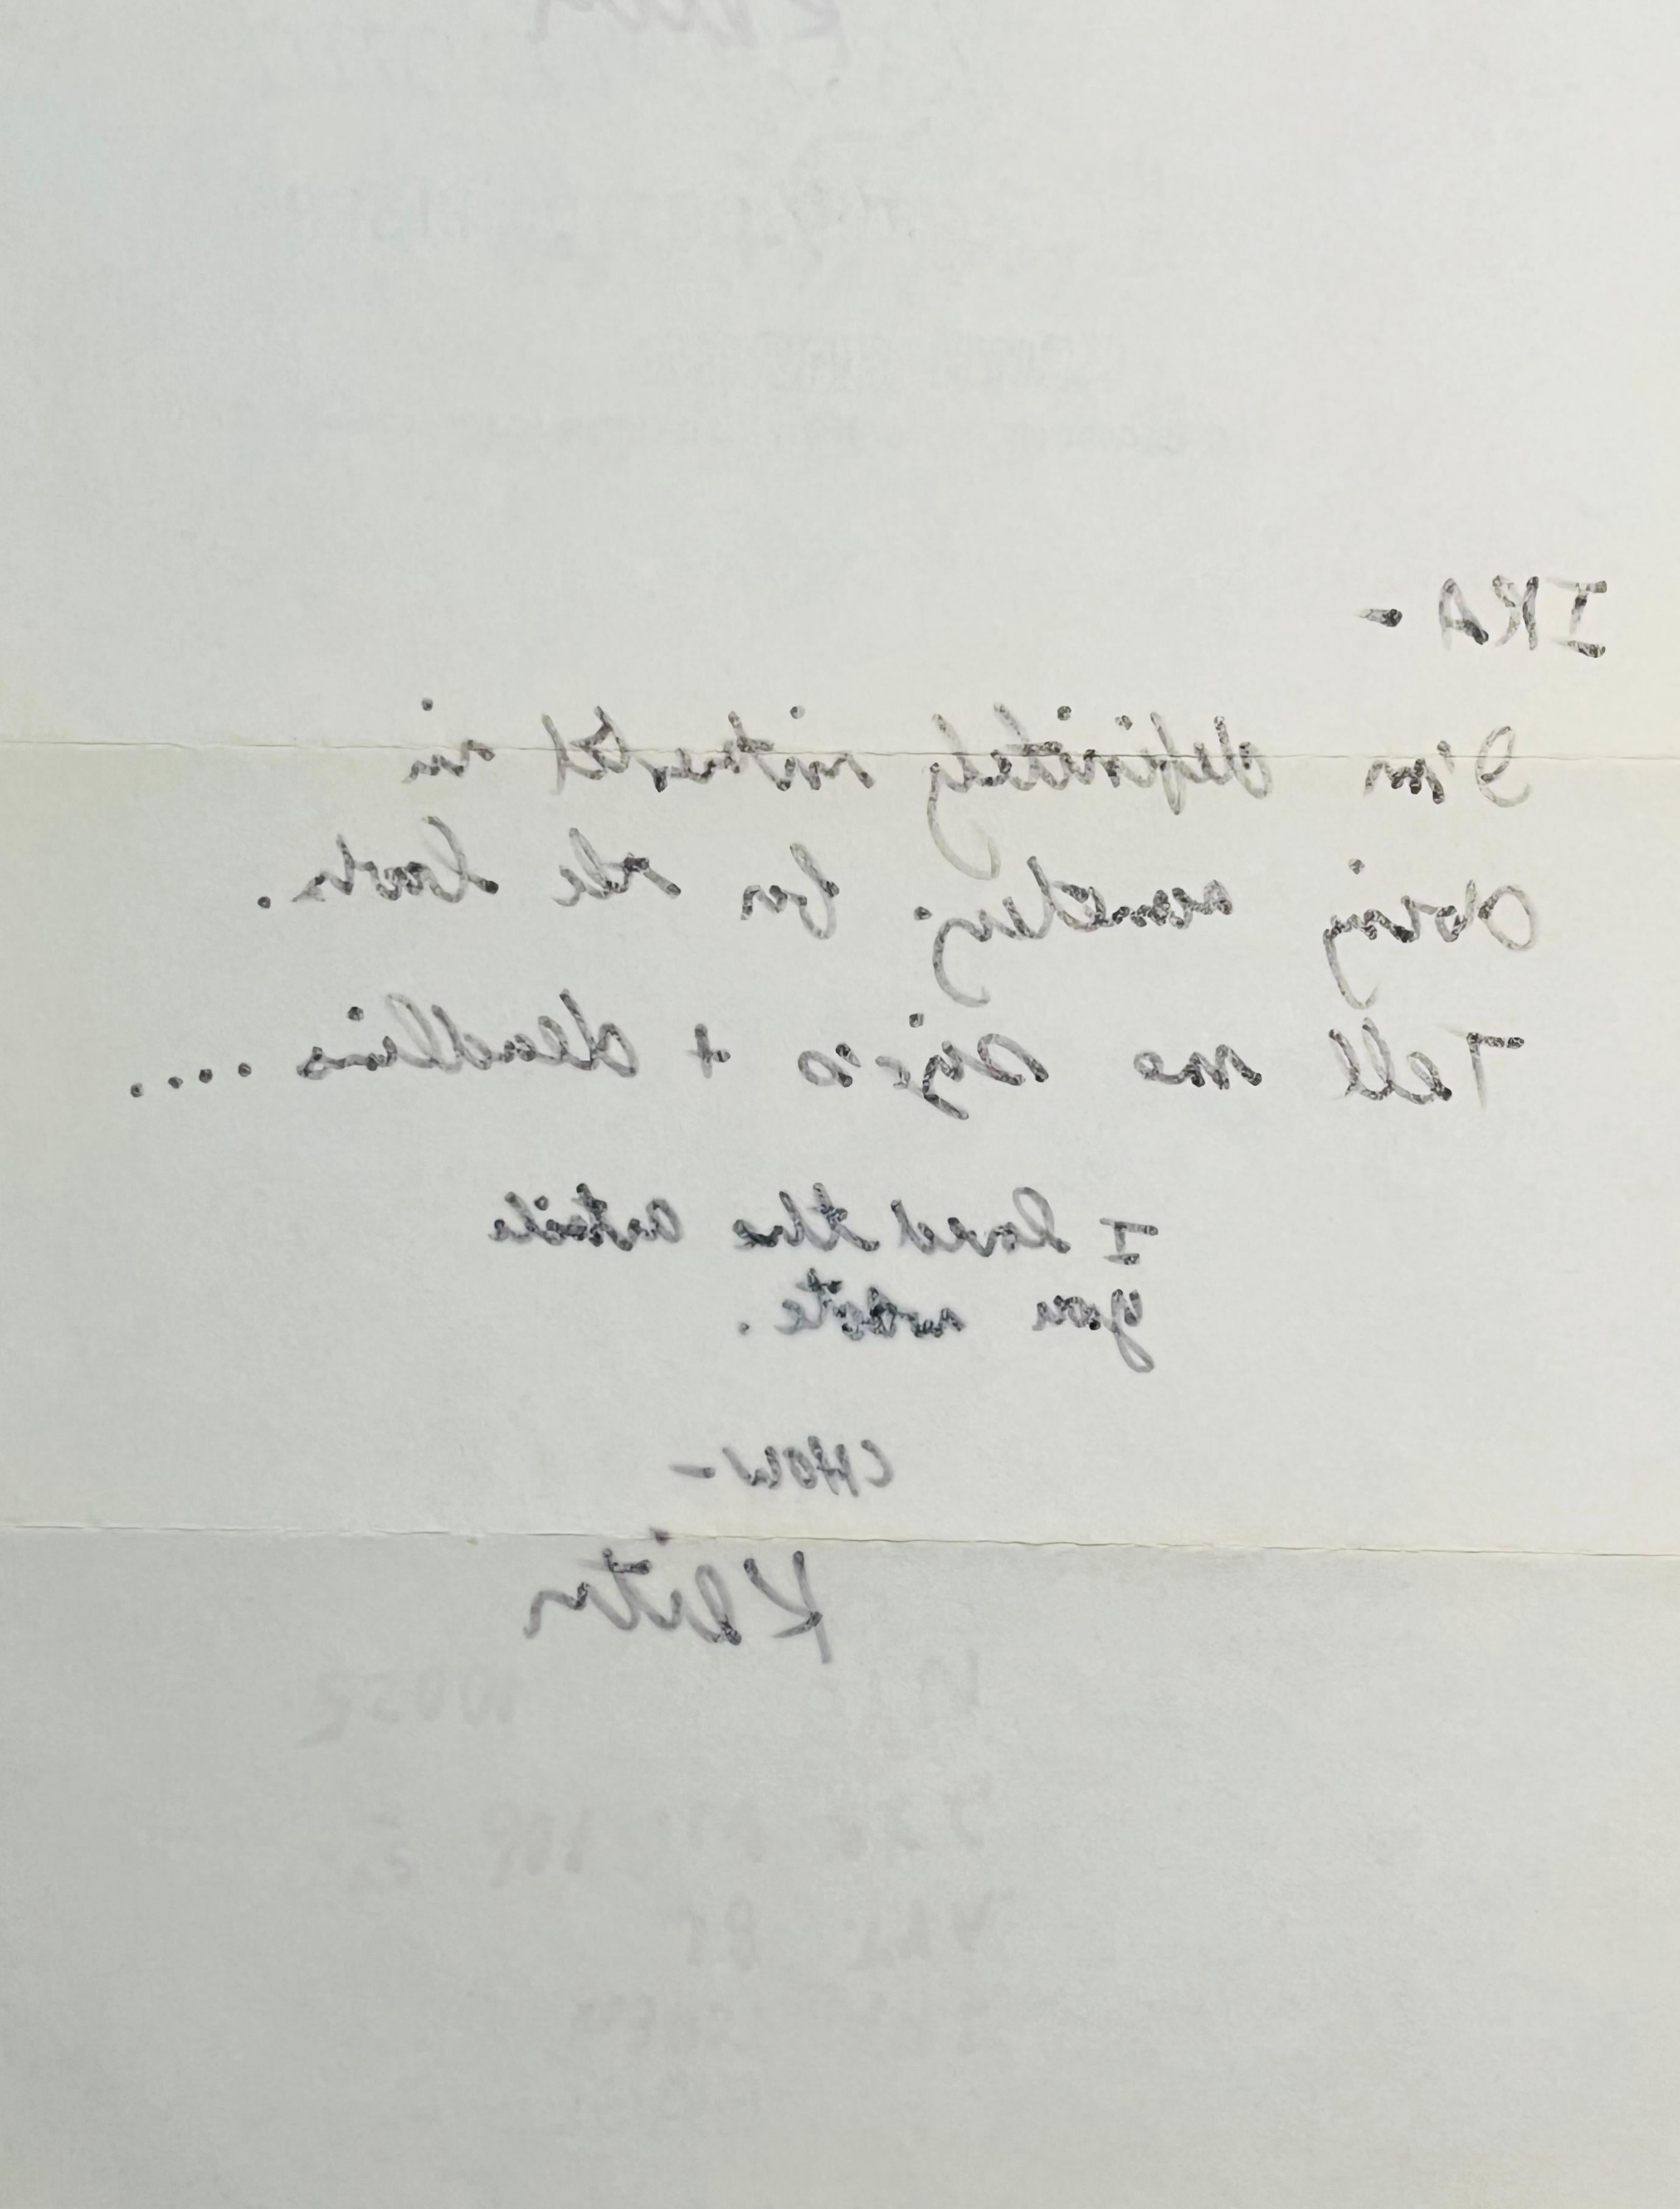 IRA -
I'm definitely interested in
doing something for the book.
Tell me size + deadline ....
I loved the article
you wrote.
CHOW -